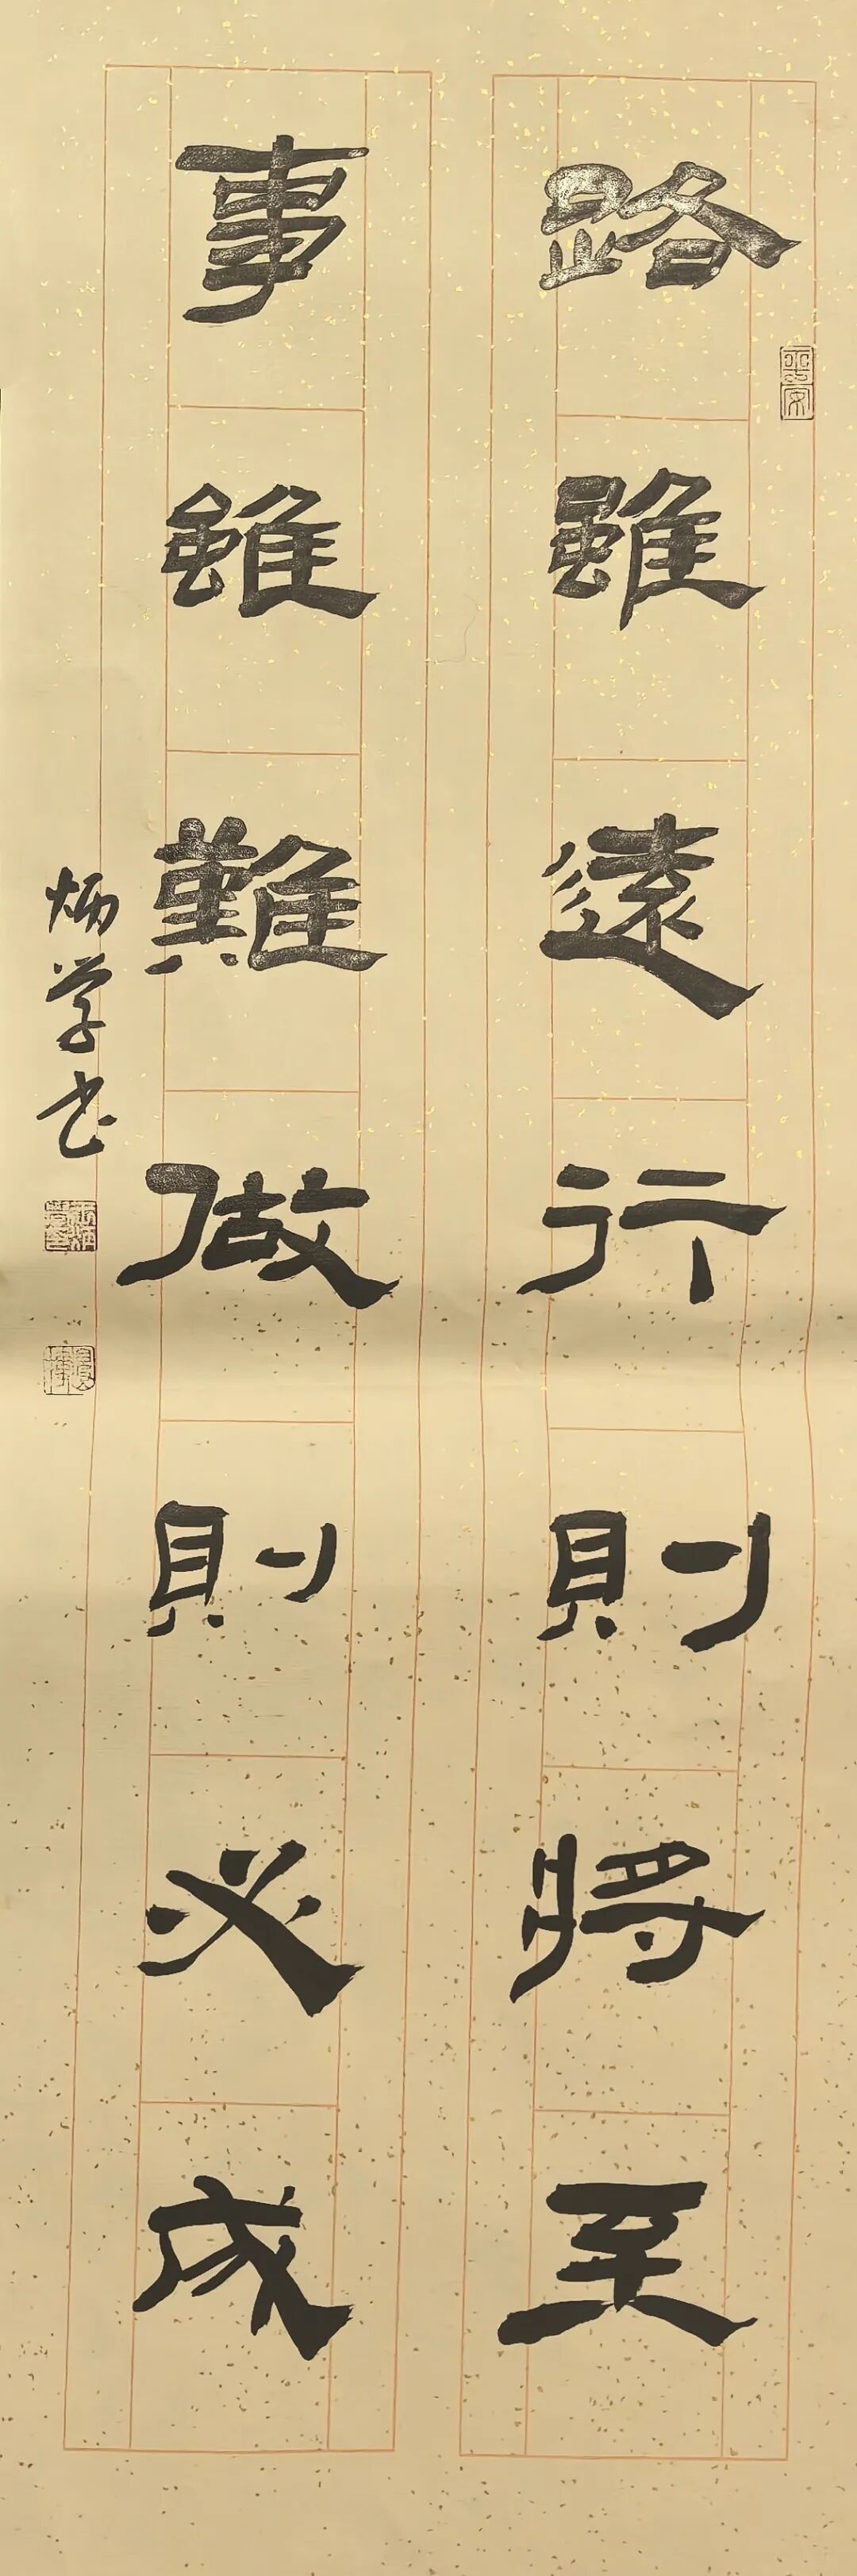 路雖遠行則將至
事雖難做則必成
炳学书
平安